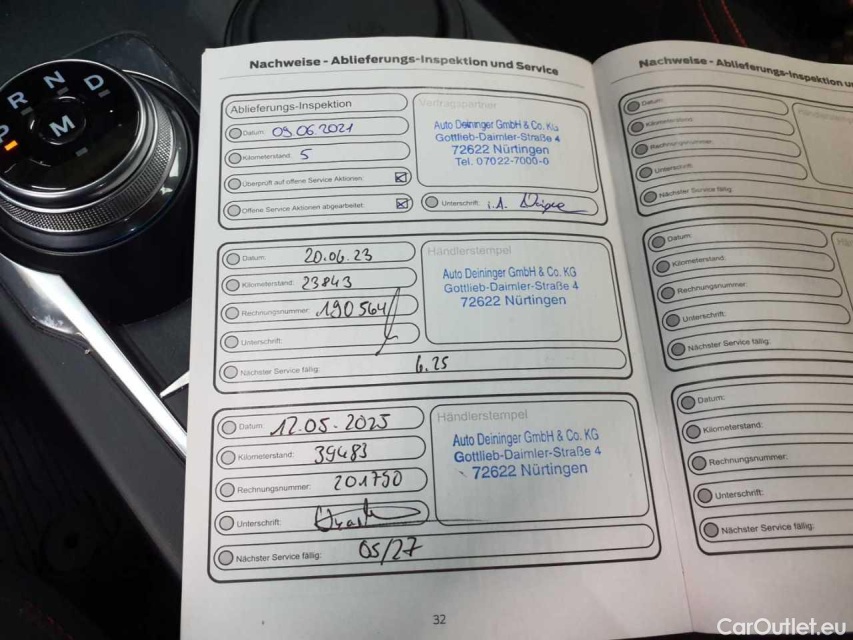 P R N D
M
Nachweise - Ablieferungs-Inspektion und Service
Ablieferungs-Inspektion
Datum: 09.06.2021
Kilometerstand: 5
Überprüft auf offene Service Aktionen:
Offene Service Aktionen abgearbeitet:
Vertragspartner
Auto Deininger GmbH & Co. KG
Gottlieb-Daimler-Straße 4
72622 Nürtingen
Tel. 07022-7000-0
Unterschrift: i.A.
Datum: 20.06.23
Kilometerstand: 23843
Rechnungsnummer: 190564
Unterschrift:
Nächster Service fällig: 6.25
Händlerstempel
Auto Deininger GmbH & Co. KG
Gottlieb-Daimler-Straße 4
72622 Nürtingen
Datum: 12.05.2025
Kilometerstand: 39483
Rechnungsnummer: 201750
Unterschrift:
Nächster Service fällig: 05/27
Händlerstempel
Auto Deininger GmbH & Co. KG
Gottlieb-Daimler-Straße 4
72622 Nürtingen
32
Nachweise - Ablieferungs-Inspektion u
Datum:
Kilometerstand:
Rechnungsnummer:
Unterschrift:
Nächster Service fällig:
Datum:
Kilometerstand:
Rechnungsnummer:
Unterschrift:
Nächster Service fällig:
Datum:
Kilometerstand:
Rechnungsnummer:
Unterschrift:
Nächster Service fällig:
CarOutlet.eu